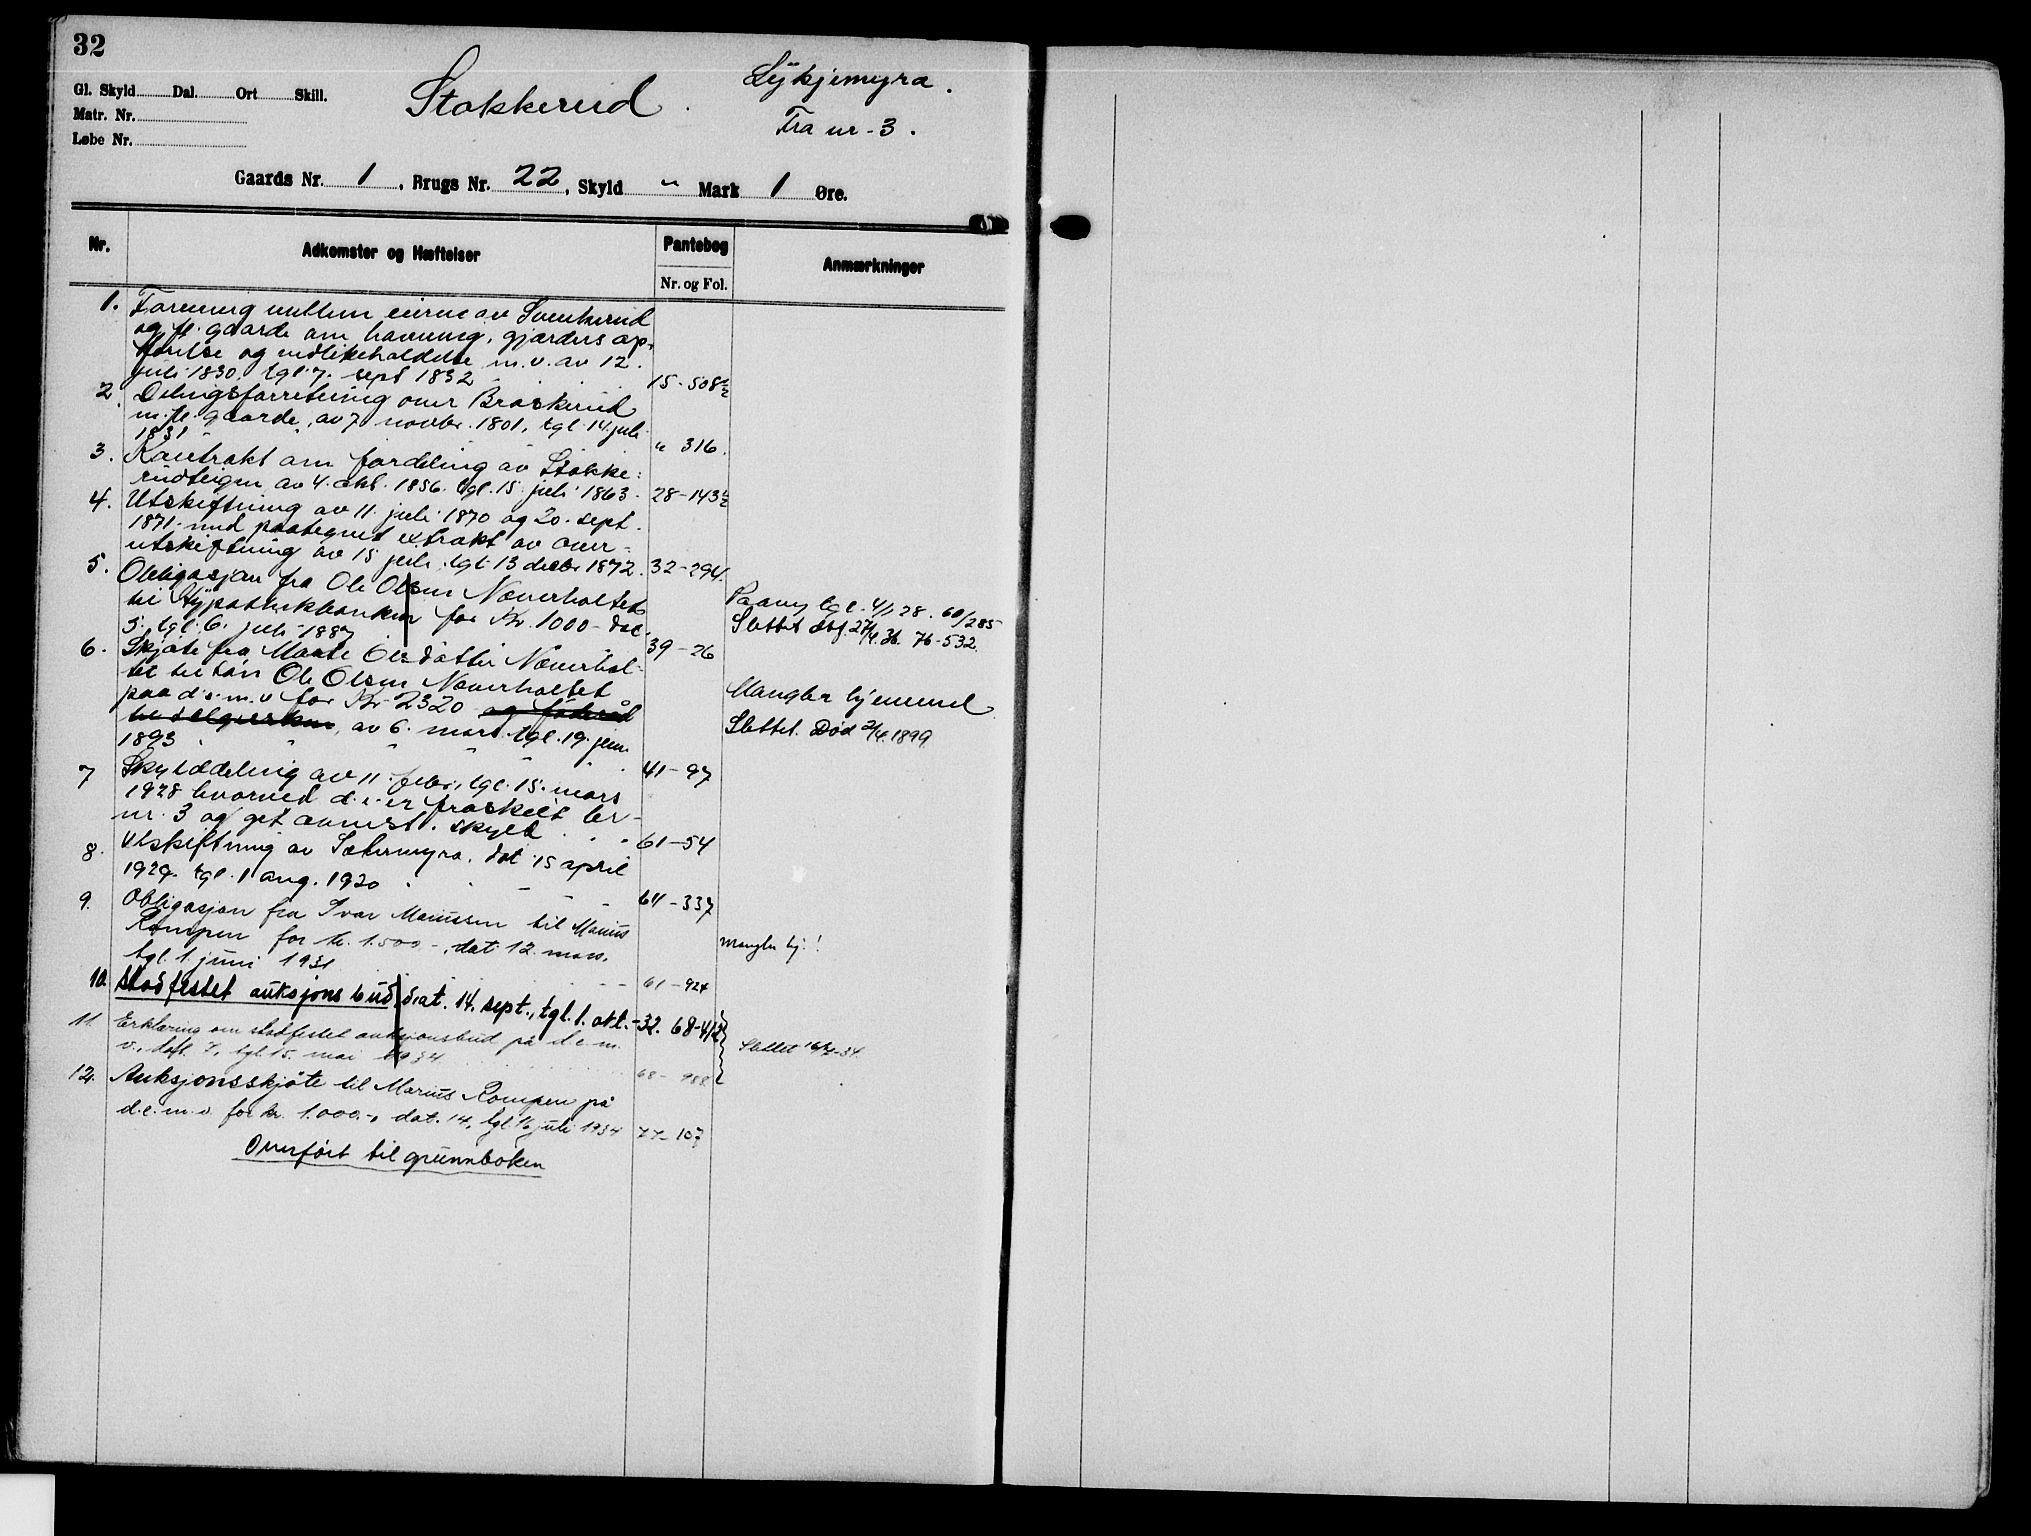 32
Gl. Skyld Dal. Ort Skill.
Matr. Nr.
Løbe Nr.
Stokkerud.
Lykjemyra.
Fra nr-3.
Gaards Nr. 1, Brugs Nr. 22, Skyld " Mark 1 Øre.
Nr. Adkomster og Hæftelser Pantebog Anmærkninger
Nr. og Fol.
1. Forening mellem eierne av
og fl. gaarde om havning, gjærders op-
og vedlikeholdelse m.v. av 12.
juli 1830, tgl. 7. sept 1832 15-508½
2. Delingsforretning over Braskerud
m. fl. gaarde, av 7 novbr. 1801, tgl. 14. juli
1831 " 316.
3. Kontrakt om fordeling av Stokke-
rudteigen av 4. okt. 1856. tgl. 15. juli 1863. 28-143½
4. Utskiftning av 11. juli 1870 og 20. sept.
1871. med paategnet extrakt av over-
utskiftning av 15 juli, tgl. 13 decbr 1872. 32-294.
5. Obligasjon fra Ole Olsen Næverholtet
til Hypothekbanken for Kr. 1000- dat.
5. tgl. 6. juli 1887 39-26
Paany tgl. 4/1 28. 60/285
Slettet 27/4.36. 76-532.
6. Skjøte fra Marte Olsdatter Næverhol-
tet til søn Ole Olsen Næverholtet
paa d.e.m.v for Kr 2320 og føderåd
til selgersken, av 6. mars tgl. 19. jun.
1893 41-97
Mangler hjemmel
Slettet. Død 2/4.1899
7 Skylddeling av 11. febr., tgl. 15. mars
1928 hvorved d.e. er fraskilt br-
nr. 3 og git anmst. skyld 61-54
8. Utskiftning av Sætermyra. dat 15 april
1929. tgl. 1 aug. 1930 64-337
9. Obligasjon fra Ivar Mariussen til Marius
Rompen for kr. 1.500-, dat. 12. mars,
tgl. 1. juni 1931 61-924
Mangler hj.!
10. Stadfestet auksjonsbud dat. 14. sept., tgl. 1. okt.-32. 68-412
11. Erklæring om stadfestet auksjonsbud på d.e.m.
v., dat. 7, tgl. 15. mai 1934 68-988.
Slettet 16/7-34.
12. Auksjonsskjöte til Marius Rompen på
d.e.m.v. for kr. 1.000.-, dat. 14, tgl 16 juli 1934 77-107
Overført til grunnboken